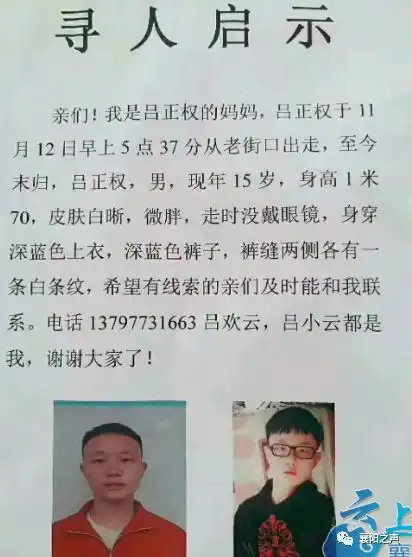 寻人启示
亲们！我是吕正权的妈妈，吕正权于 11
月 12 日早上 5 点 37 分从老街口出走，至今
末归，吕正权，男，现年 15 岁，身高 1 米
70，皮肤白晰，微胖，走时没戴眼镜，身穿
深蓝色上衣，深蓝色裤子，裤缝两侧各有一
条白条纹，希望有线索的亲们及时能和我联
系。电话 13797731663 吕欢云，吕小云都是
我，谢谢大家了！
六上
襄
襄阳之声